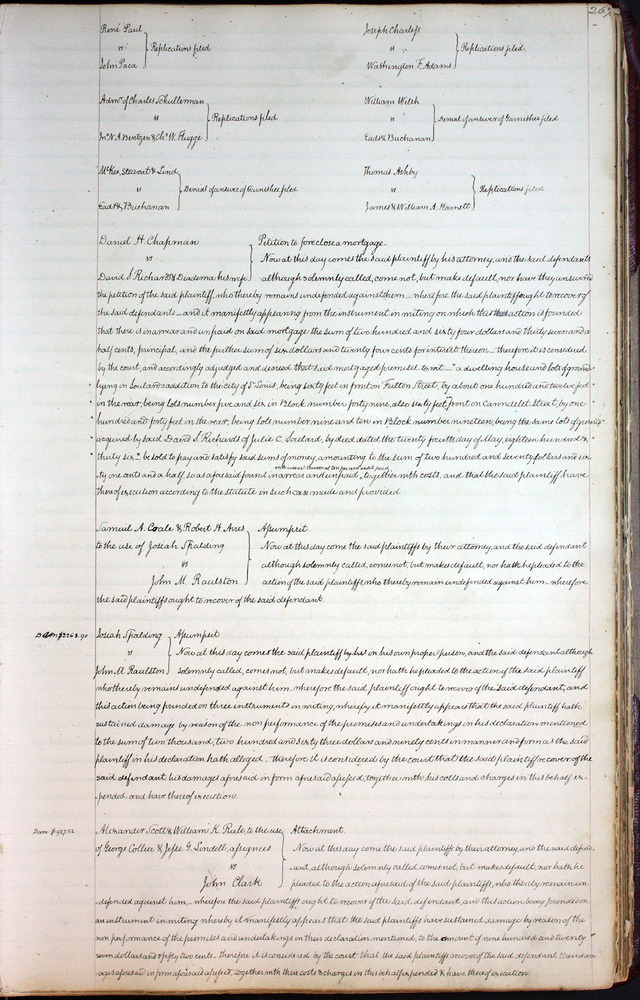 265
René Paul
vs } Replications filed
John Paca
Joseph Charless
vs } Replications filed.
Washington F. Adams
Admr. of Charles Schullerman
vs } Replications filed
Jno. N. A. Bentzen & Chs. W. Flugge
William Welsh
vs } Denial of answer of Garnishee filed
Eads & Buchanan
McKee, Stewart & Lind
vs } Denial of answer of Garnishee filed
Eads & Buchanan
Thomas Ashby
vs } Replications filed
James & William A. Harnett
Daniel H. Chapman } Petition to foreclose a mortgage.
vs Now at this day comes the said plaintiff by his attorney, and the said defendants
David S. Richards & Diadema his wife although solemnly called, come not, but make default, nor have they answered
the petition of the said plaintiff, who thereby remains undefended against them – wherefore the said plaintiff ought to recover of
the said defendants – and it manifestly appearing from the instrument in writing on which this action is founded
that there is in arrear and unpaid on said mortgage the sum of two hundred and sixty four dollars and thirty seven and a
half cents, principal, and the further sum of six dollars and twenty four cents for interest thereon – therefore it is considered
by the court, and accordingly adjudged and decreed that said mortgaged premises to wit – "a dwelling house and lots of ground
lying in Soulard's addition to the city of St Louis, being sixty feet in front on Fulton Street, by about one hundred and twelve feet
in the rear, being lots number five and six in Block number forty nine, also sixty feet front on Carondelet Street, by one
hundred and forty feet in the rear, being lots number nine and ten in Block number nineteen, being the same lots of ground
acquired by said David S. Richards of Julia C. Soulard, by deed dated the twenty fourth day of May, eighteen hundred &
thirty six" be sold to pay and satisfy said sums of money, amounting to the sum of two hundred and seventy dollars and six-
with interest thereon at ten per cent until paid
ty one cents and a half, so as aforesaid found in arrear and unpaid, together with costs, and that the said plaintiff have
thereof execution according to the statute in such case made and provided
Samuel A. Coale & Robert H. Aires } Assumpsit
to the use of Josiah Spalding Now at this day come the said plaintiffs by their attorney, and the said defendant
vs although solemnly called, comes not, but makes default, nor hath he pleaded to the
John M. Raulston action of the said plaintiffs, who thereby remain undefended against him – wherefore
the said plaintiffs ought to recover of the said defendant.
$2263.90
Josiah Spalding } Assumpsit
vs Now at this day comes the said plaintiff by his in his own proper person, and the said defendant although
John M. Raulston solemnly called, comes not, but makes default, nor hath he pleaded to the action of the said plaintiff
who thereby remains undefended against him – wherefore the said plaintiff ought to recover of the said defendant, and
this action being founded on three instruments in writing, whereby it manifestly appears that the said plaintiff hath
sustained damage by reason of the non performance of the promises and undertakings in his declaration mentioned
to the sum of two thousand, two hundred and sixty three dollars and ninety cents in manner and form as the said
plaintiff in his declaration hath alleged – therefore it is considered by the court that the said plaintiff recover of the
said defendant his damages aforesaid in form aforesaid assessed, together with his costs and charges in this behalf ex-
-pended, and have thereof execution.
Dam. $927.52
Alexander Scott & William K. Rule, to the use } Attachment.
of George Collier & Jesse G. Lindell, assignees Now at this day come the said plaintiffs by their attorney, and the said defend-
vs -ant, although solemnly called, comes not, but makes default, nor hath he
John Clark pleaded to the action aforesaid of the said plaintiffs, who thereby remain un-
-defended against him – wherefore the said plaintiffs ought to recover of the said defendant, and this action being founded on
an instrument in writing whereby it manifestly appears that the said plaintiffs have sustained damage by reason of the
non performance of the promises and undertakings in their declaration mentioned, to the amount of nine hundred and twenty
seven dollars and fifty two cents – therefore it is considered by the court that the said plaintiffs recover of the said defendant their dam-
-ages aforesaid in form aforesaid assessed, together with their costs & charges in this behalf expended & have thereof execution